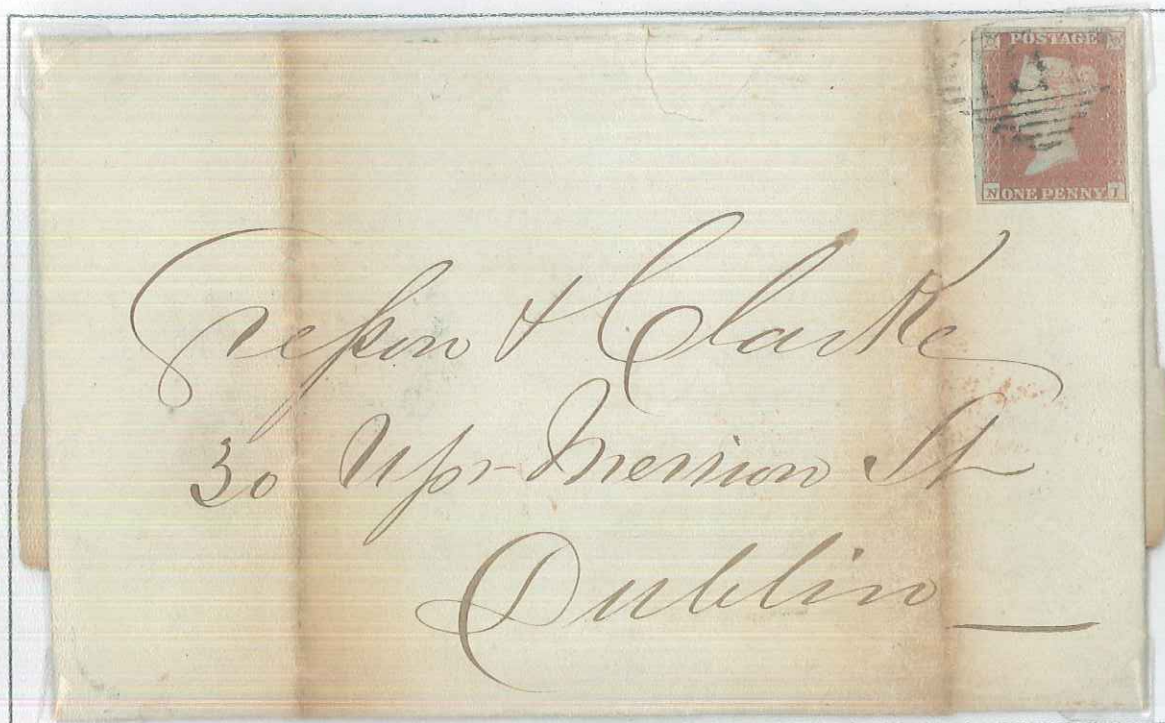 POSTAGE
N ONE PENNY I
& Clarke
30 Upr Merrion St
Dublin